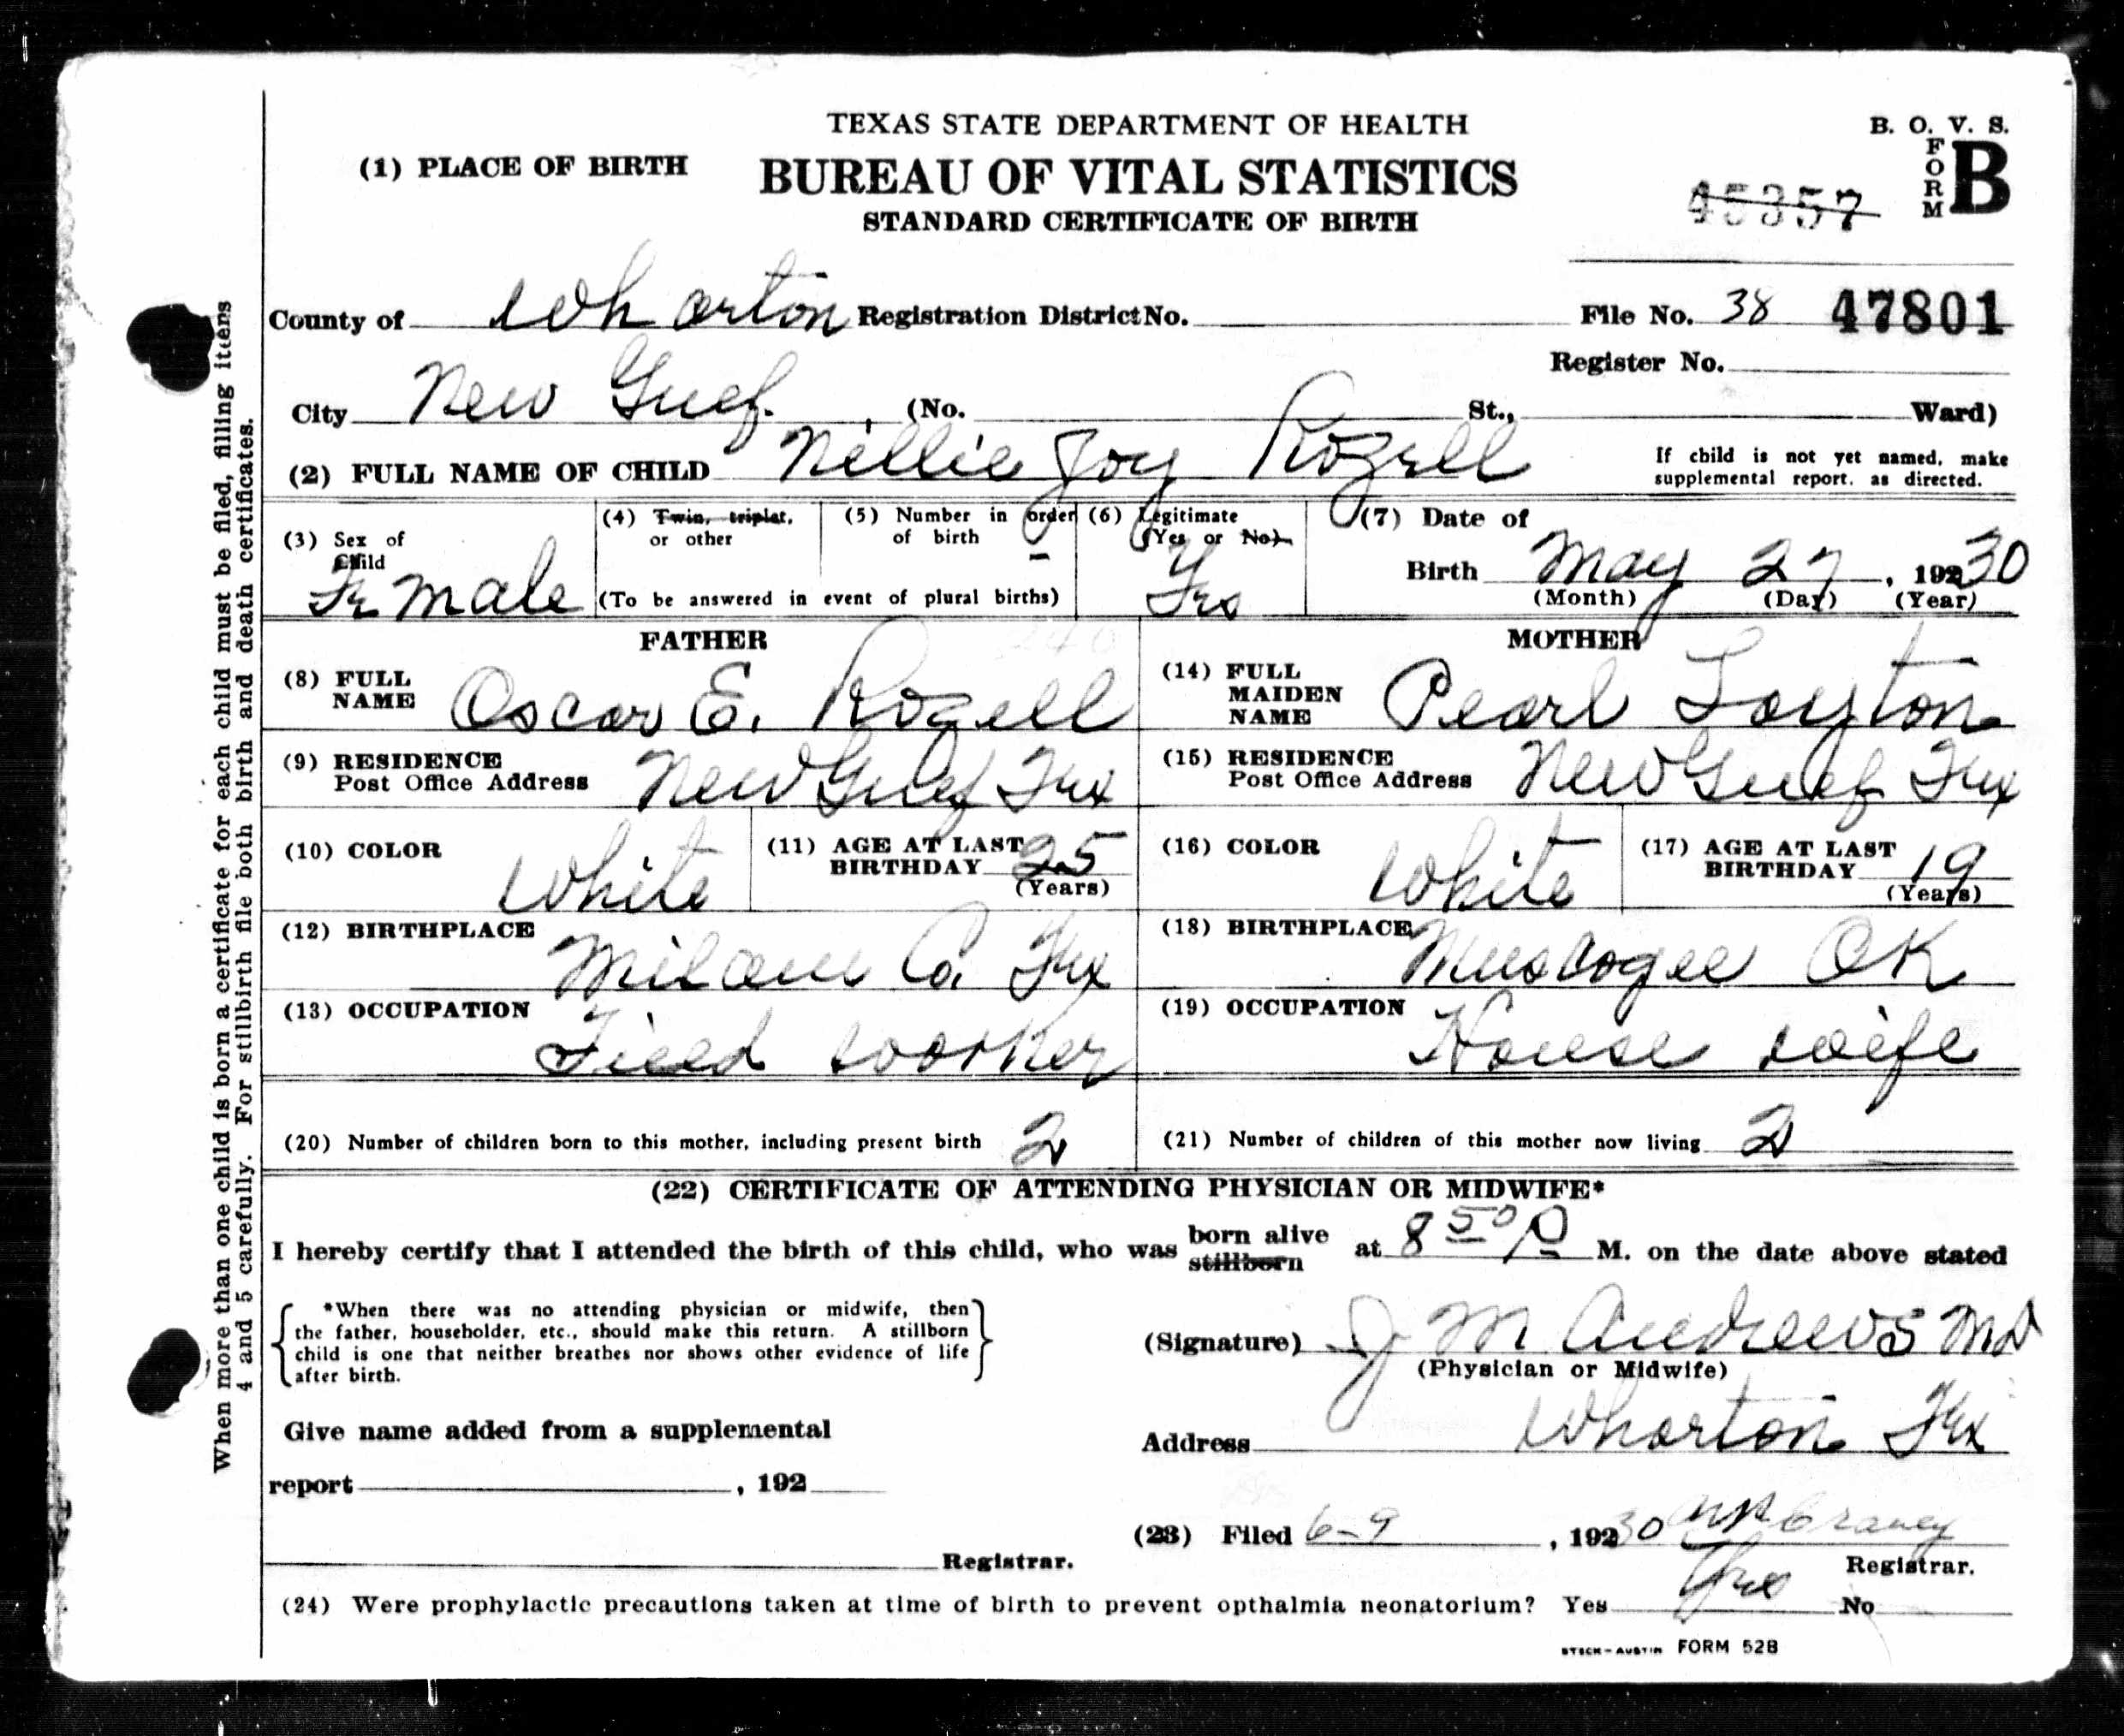 TEXAS STATE DEPARTMENT OF HEALTH
B. O. V. S.
(1) PLACE OF BIRTH
BUREAU OF VITAL STATISTICS
FORM B
STANDARD CERTIFICATE OF BIRTH
45357
County of Wharton Registration District No. File No. 38 47801
Register No.
City New Gulf. , (No. St., Ward)
(2) FULL NAME OF CHILD Nellie Joy Rozell
If child is not yet named, make
supplemental report, as directed.
(3) Sex of
Child
Female
(4) Twin, triplet,
or other
(5) Number in order
of birth
-
(To be answered in event of plural births)
(6) Legitimate
(Yes or No)
Yes
(7) Date of
Birth May 27, 192 30
(Month) (Day) (Year)
FATHER
(8) FULL
NAME Oscar E. Rozell
(9) RESIDENCE
Post Office Address New Gulf Tex
(10) COLOR White
(11) AGE AT LAST
BIRTHDAY 25
(Years)
(12) BIRTHPLACE Milam Co. Tex
(13) OCCUPATION Field worker
MOTHER
(14) FULL
MAIDEN
NAME Pearl Layton
(15) RESIDENCE
Post Office Address New Gulf Tex
(16) COLOR White
(17) AGE AT LAST
BIRTHDAY 19
(Years)
(18) BIRTHPLACE Muskogee OK
(19) OCCUPATION House wife
(20) Number of children born to this mother, including present birth 2
(21) Number of children of this mother now living 2
(22) CERTIFICATE OF ATTENDING PHYSICIAN OR MIDWIFE*
I hereby certify that I attended the birth of this child, who was born alive stillborn at 8 50 P M. on the date above stated
*When there was no attending physician or midwife, then
the father, householder, etc., should make this return. A stillborn
child is one that neither breathes nor shows other evidence of life
after birth.
(Signature) J M Andrews MD
(Physician or Midwife)
Give name added from a supplemental
report , 192
Address Wharton Tex
(23) Filed 6-9 , 192 30
Registrar.
Registrar.
(24) Were prophylactic precautions taken at time of birth to prevent opthalmia neonatorium? Yes Yes No
STECK-AUSTIN FORM 52B
When more than one child is born a certificate for each child must be filed, filling items
4 and 5 carefully. For stillbirth file both birth and death certificates.